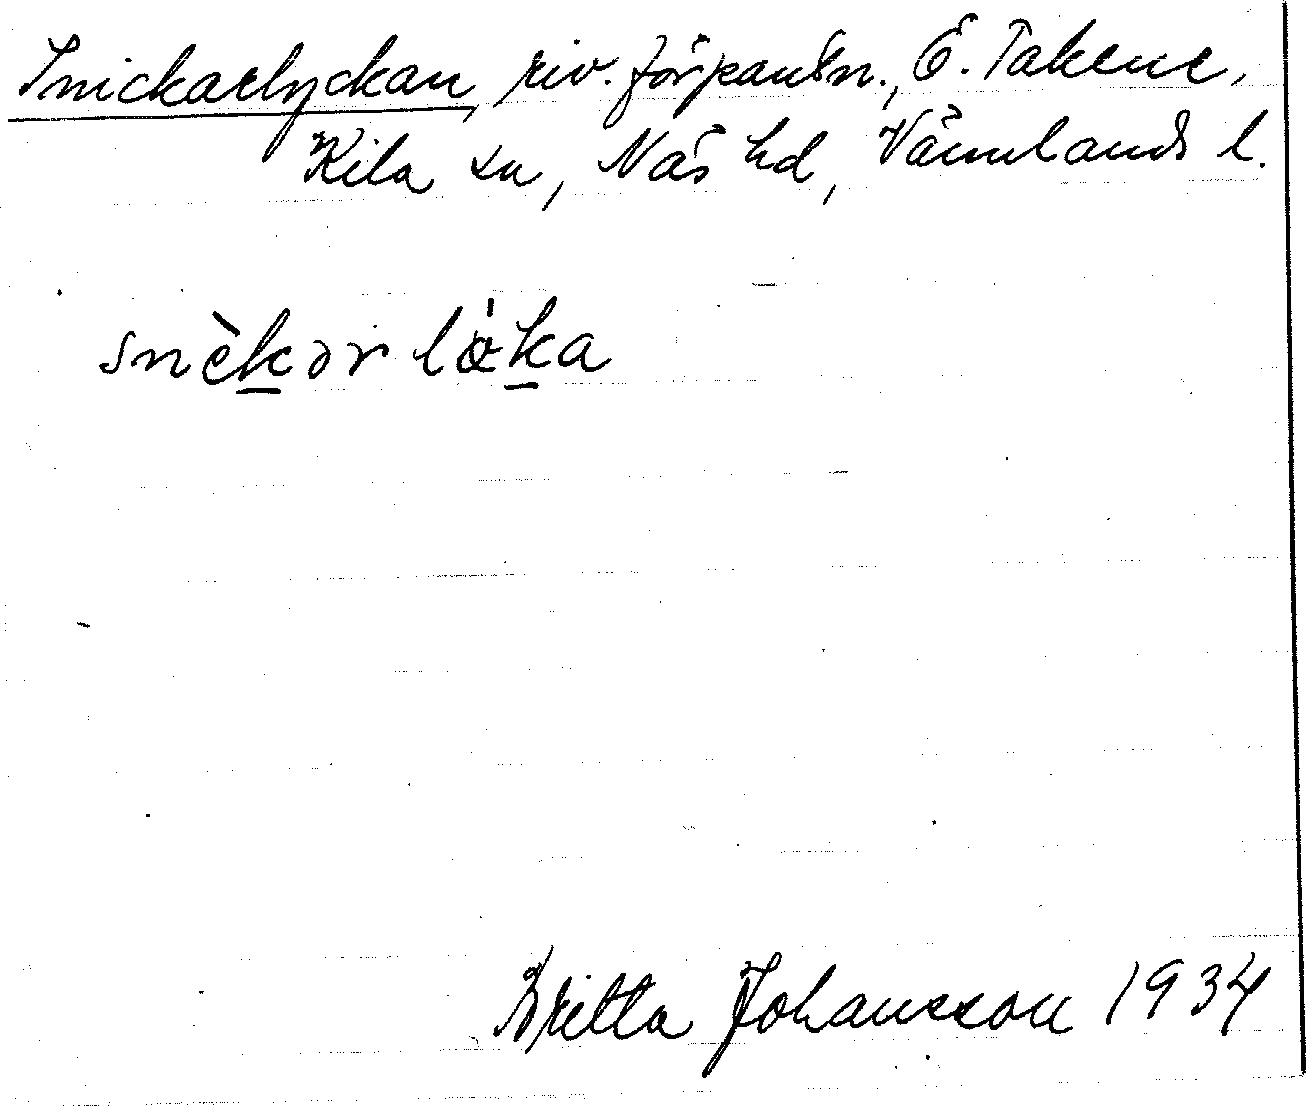 Snickarlyckan, riv. förpantn., Ö. Takene,
Kila sn, Näs hd, Värmlands l.
snèkər lœ̀ka
Britta Johansson 1934